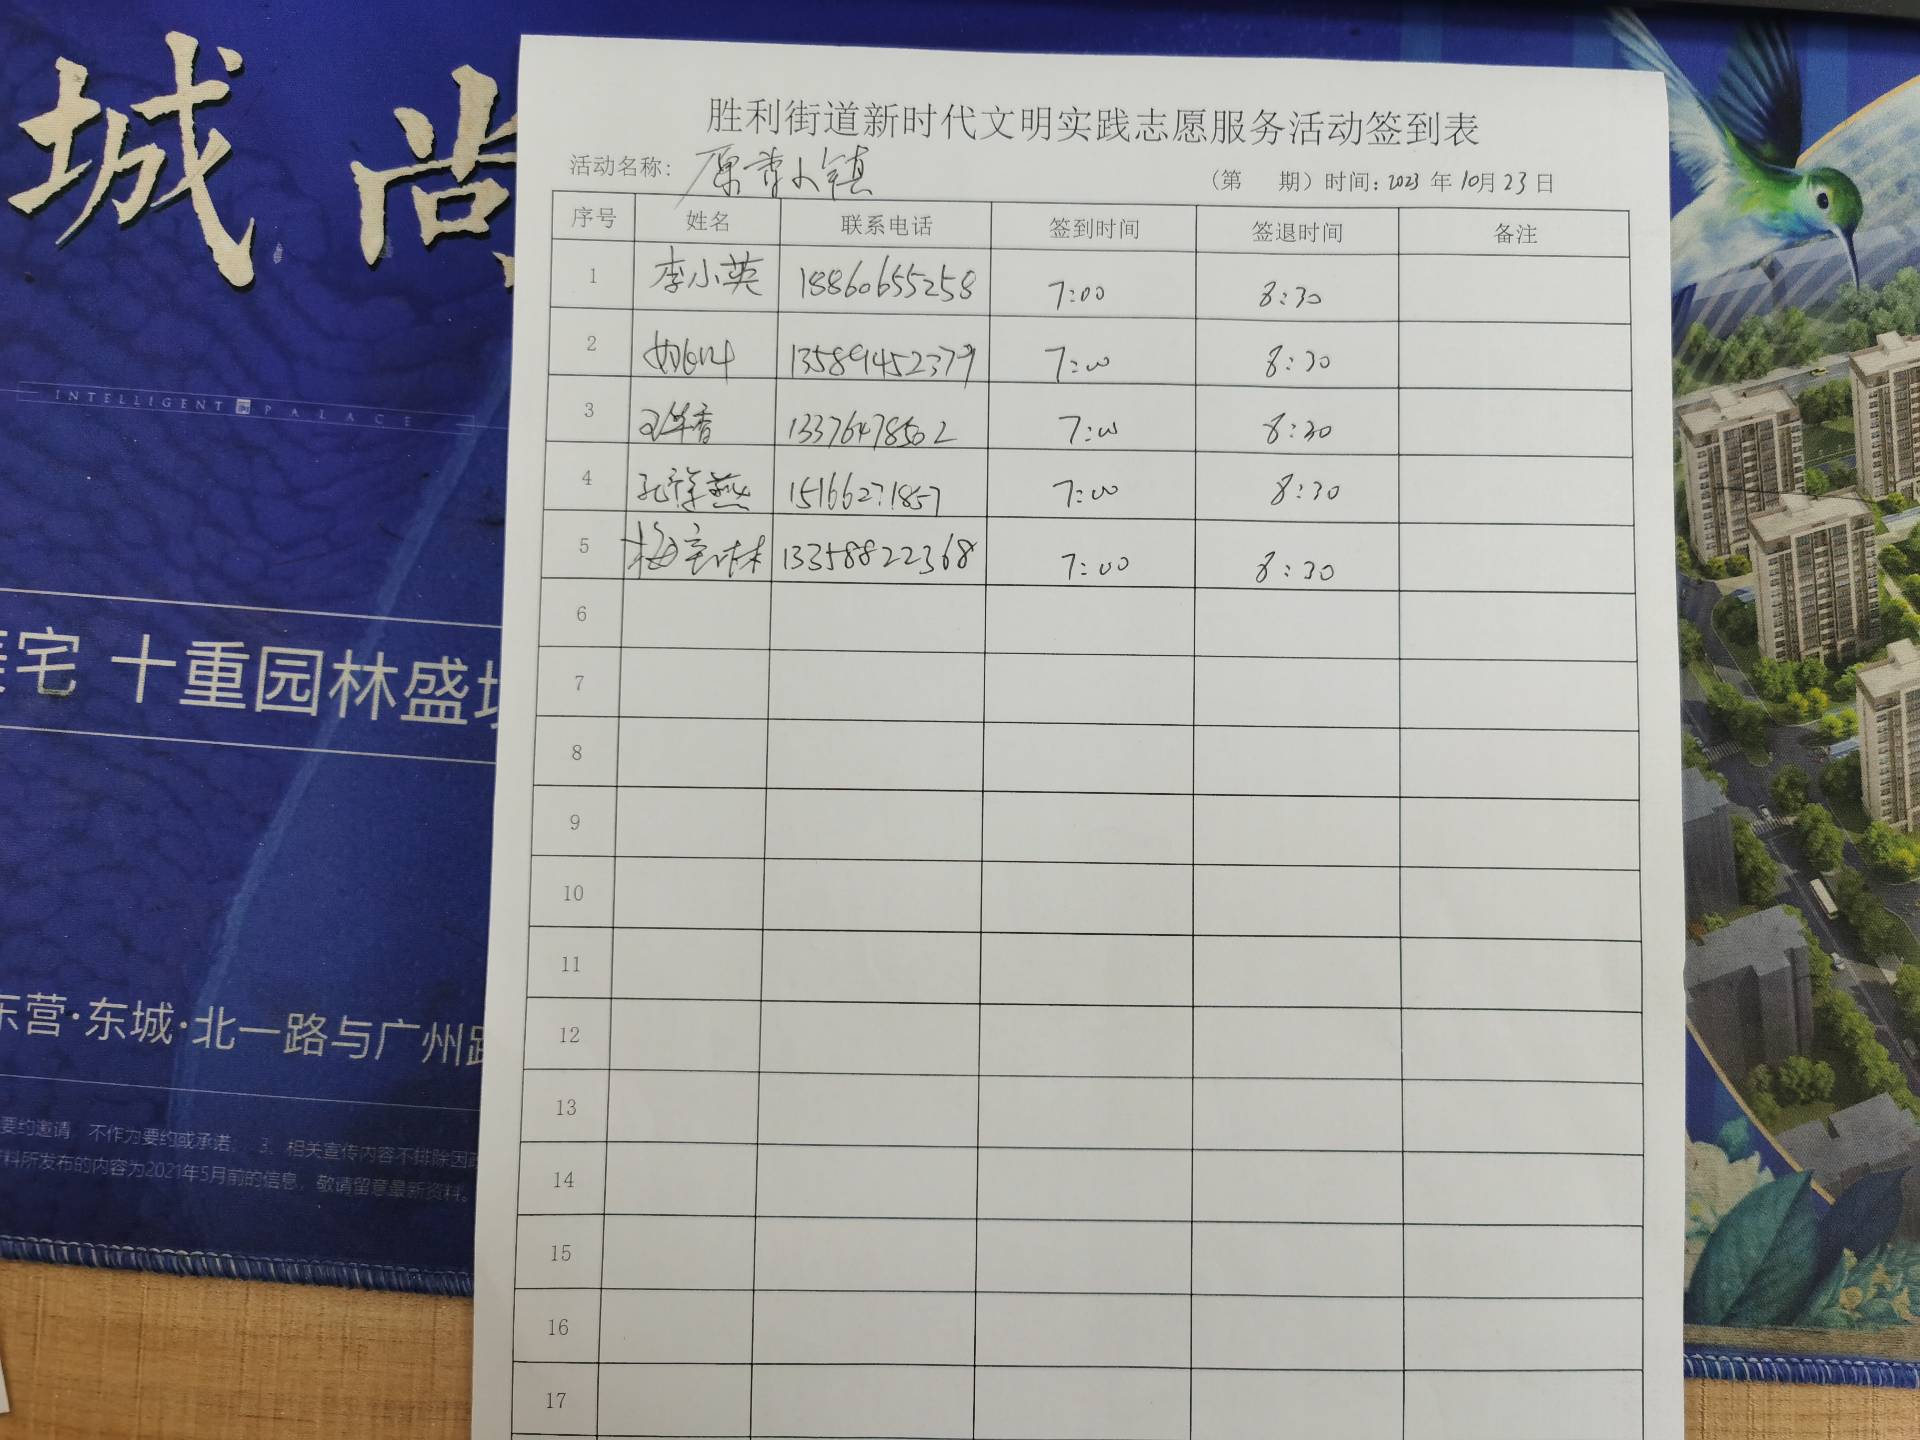 城 尚
INTELLIGENT PALACE
宅 十重园林盛
东营·东城·北一路与广州路
要约邀请,不作为要约或承诺; 3、相关宣传内容不排除因政
料所发布的内容为2021年5月前的信息,敬请留意最新资料。
胜利街道新时代文明实践志愿服务活动签到表
活动名称: 原著小镇 (第 期) 时间: 2023 年 10月 23 日
序号 姓名 联系电话 签到时间 签退时间 备注
1 李小英 18860655258 7:00 8:30
2 13589452379 7:00 8:30
3 13376478502 7:00 8:30
4 孔祥燕 15166271857 7:00 8:30
5 梅宝林 13358822368 7:00 8:30
6
7
8
9
10
11
12
13
14
15
16
17